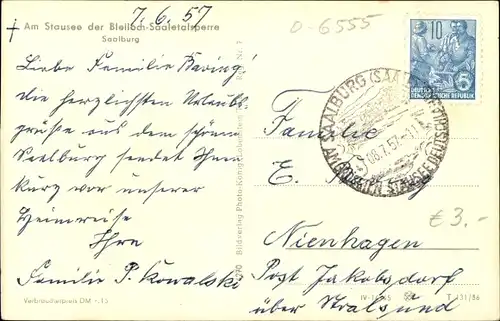 7.6.57
Am Stausee der Bleiloch-Saaletalsperre
Saalburg
0-6555
Liebe Familie Baring!
die herzlichsten Urlaubs-
grüße aus dem schönen
Saalburg sendet Ihnen
kurz vor unserer
Heimreise
Ihre
Familie P. Kowalski
Verbraucherpreis DM -,15
Bildverlag Photo-König
10
DEUTSCHE
DEMOKRATISCHE REPUBLIK
SAALBURG (SAALE)
08.7.57.-11
AM GRÖSSTEN STAUSEE DEUTSCHLANDS
Familie
E.
€ 3.-
Nienhagen
Post Jakobsdorf
über Stralsund
T 131/86